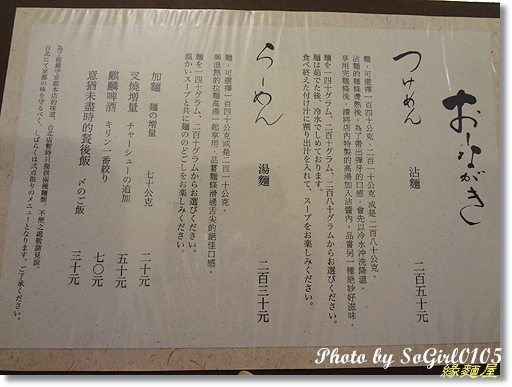 おしながき
つけめん 沾麵 二百五十元
麵，可選擇一百四十公克、二百一十公克，或是二百八十公克。
沾麵的麵條燙熟後，為了帶出彈牙的口感，會先以冷水沖洗降溫。
享用完麵條後，請將店內特製的高湯加入沾醬內，品嘗另一種絕妙好滋味。
麵を一四十グラム、二百一十グラム、二百八十グラムからお選びください。
麵は茹でた後、冷水でしめております。
食べ終えた付け汁に割り出汁を入れて、スープをお楽しみください。
らーめん 湯麵 二百三十元
麵，可選擇一百四十公克或是二百一十公克。
與溫熱的拉麵高湯一起享用，品嘗麵條滑過舌尖的絕佳口感。
麵を一四十グラム、二百一十グラムからお選びください。
温かいスープと共に麵ののどごしをお楽しみください。
加麵 麵の增量 七十公克 二十元
叉燒增量 チャーシューの追加 五十元
麒麟啤酒 キリン一番絞り 七〇元
意猶未盡時的餐後飯 〆のご飯 三十元
為了能嚴守京都本店的味道，台北店暫時只提供兩種麵類，不便之處敬請見諒。
台北にて京都の味を守るべく、しばらくは弐点限りのメニューとなります。ご了承ください。
Photo by SoGirl0105
緣麵屋